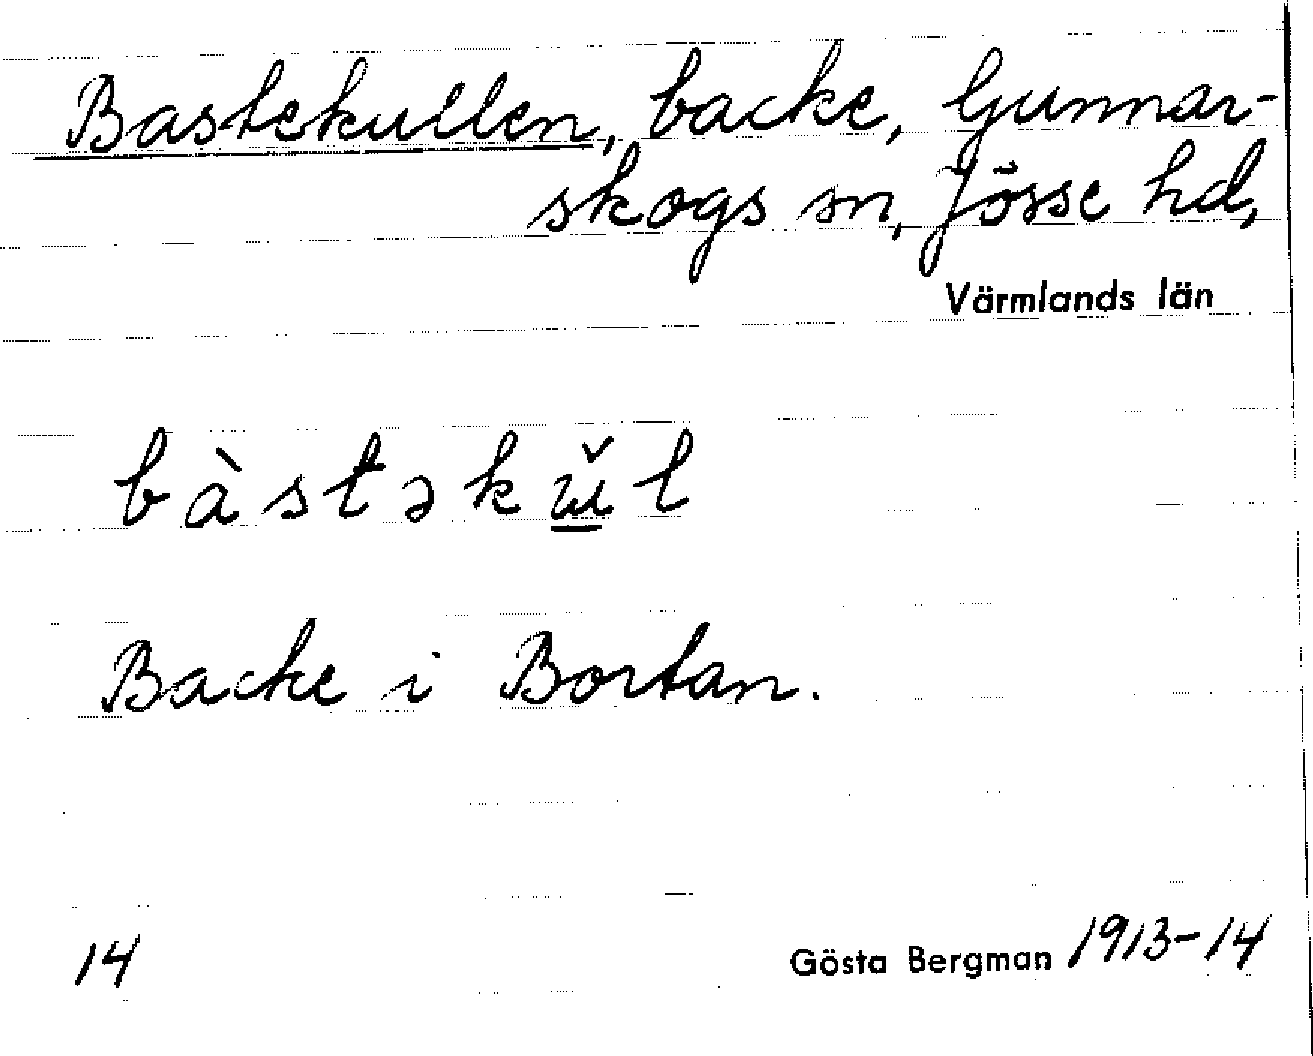 Bastekullen, backe, Gunnar-
skogs sn, Jösse hd,
Värmlands län
bàstəkŭl
Backe i Bortan.
14
Gösta Bergman 1913-14